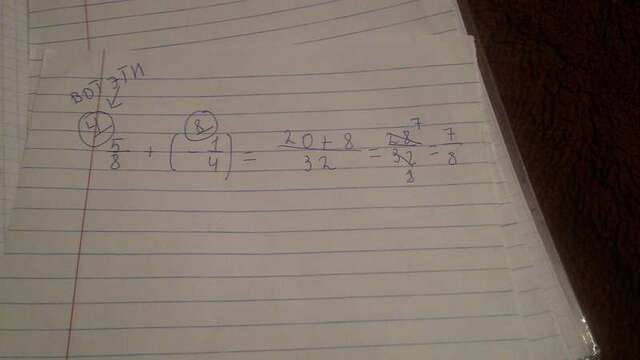 ВОТ ЭТИ
4 8
5/8 + (-1/4) = 20+8/32 = 28/32 = 7/8
7
8